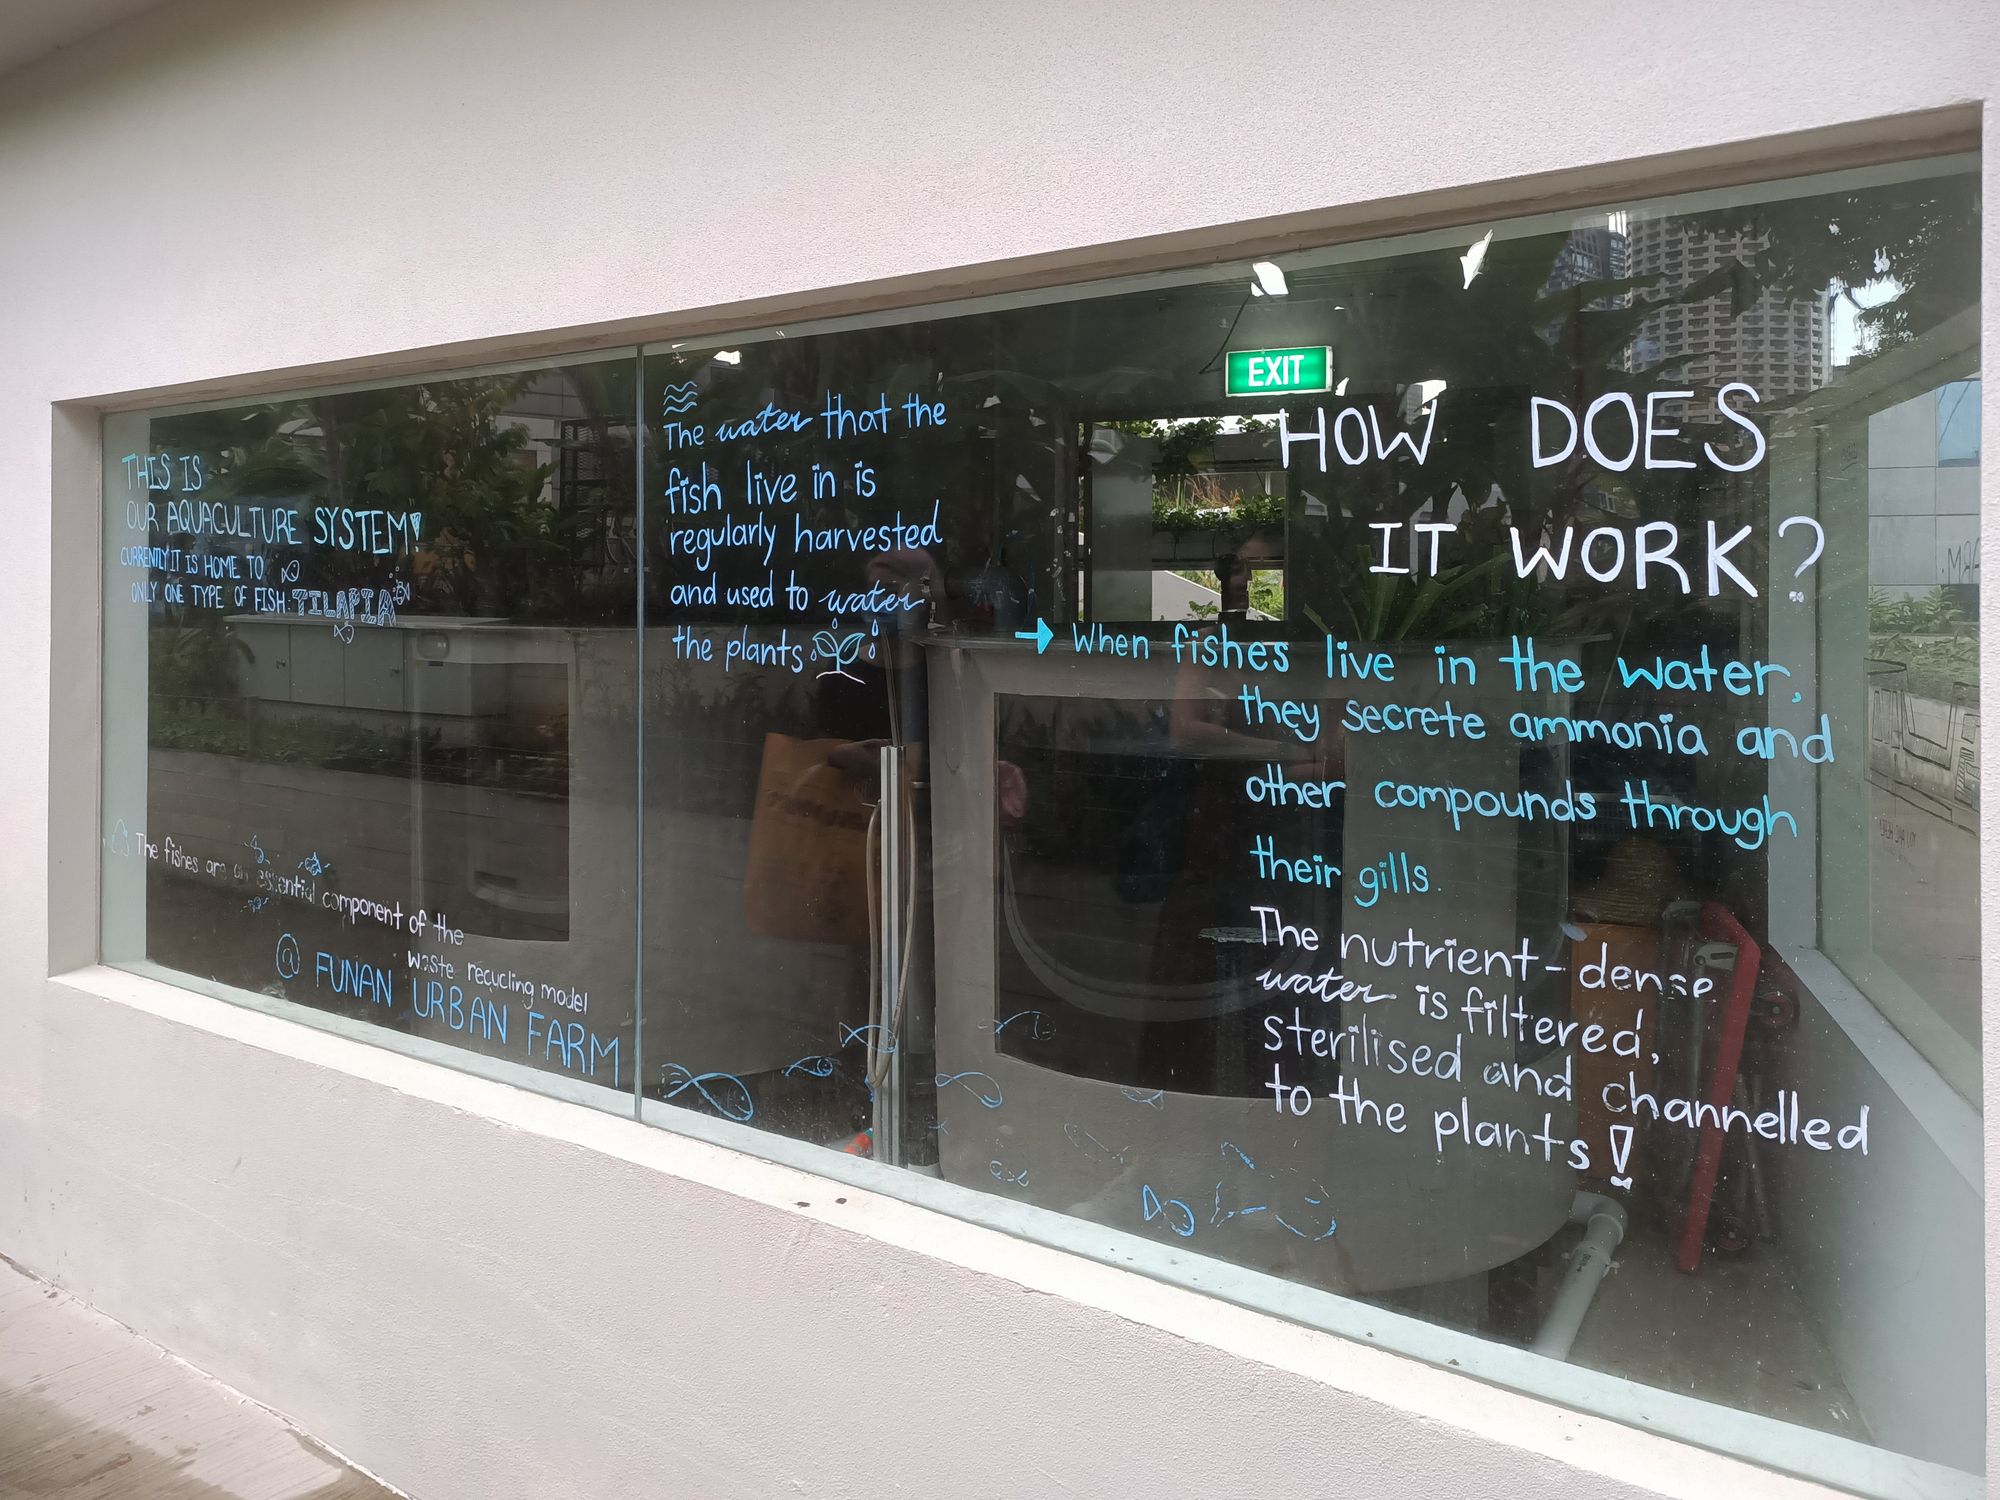 THIS IS
OUR AQUACULTURE SYSTEM!
CURRENTLY IT IS HOME TO
ONLY ONE TYPE OF FISH: TILAPIA
The fishes are an essential component of the
waste recycling model
@ FUNAN URBAN FARM
The water that the
fish live in is
regularly harvested
and used to water
the plants
EXIT
HOW DOES
IT WORK?
→ When fishes live in the water,
they secrete ammonia and
other compounds through
their gills.
The nutrient-dense
water is filtered,
sterilised and channelled
to the plants!